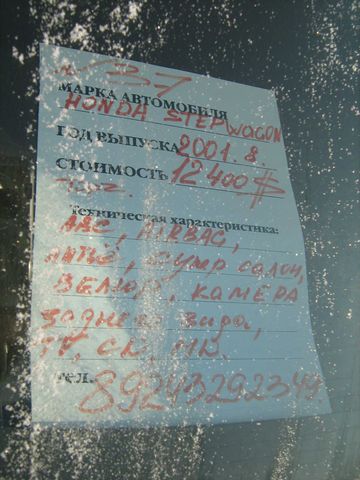 МАРКА АВТОМОБИЛЯ
HONDA STEPWAGON
ГОД ВЫПУСКА 2001. 8.
СТОИМОСТЬ 12 400 $
торг
Техническая характеристика:
ABC, AIRBAG,
литьё, супер салон,
ВЕЛЮР, КАМЕРА
заднего вида,
TV, CD, MD.
тел. 89243292349